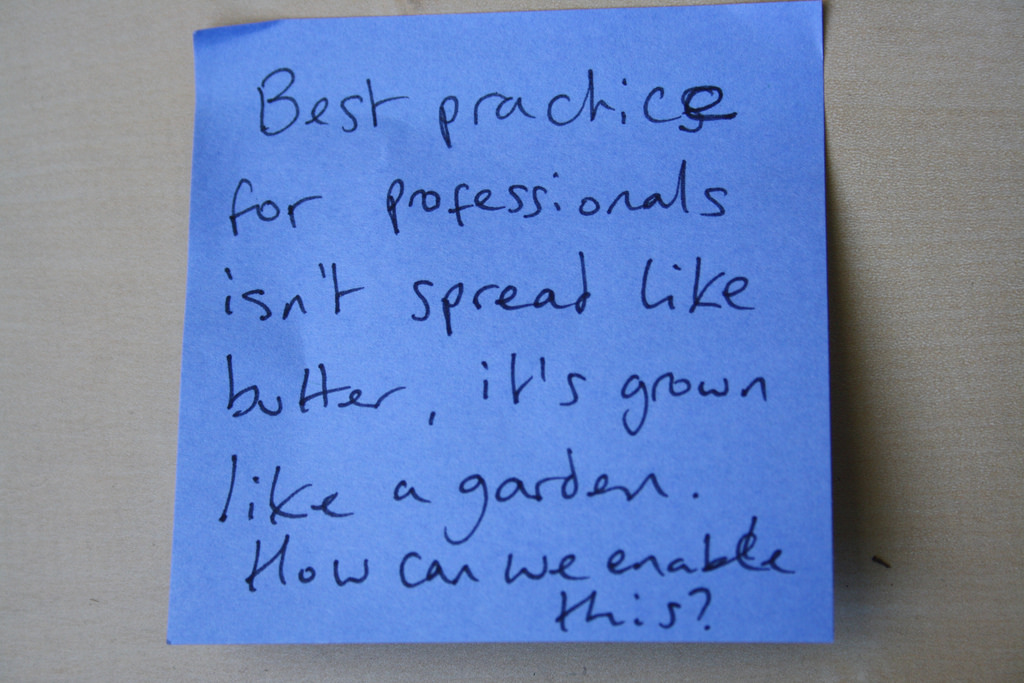 Best practice
for professionals
isn't spread like
butter, it's grown
like a garden.
How can we enable
this?